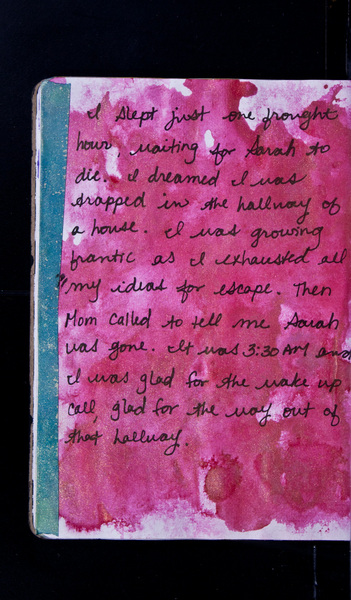 I slept just one frought
hour, waiting for Sarah to
die. I dreamed I was
trapped in the hallway of
a house. I was growing
frantic as I exhausted all
my ideas for escape. Then
Mom called to tell me Sarah
was gone. It was 3:30 AM and
I was glad for the wake up
call, glad for the way out of
that hallway.